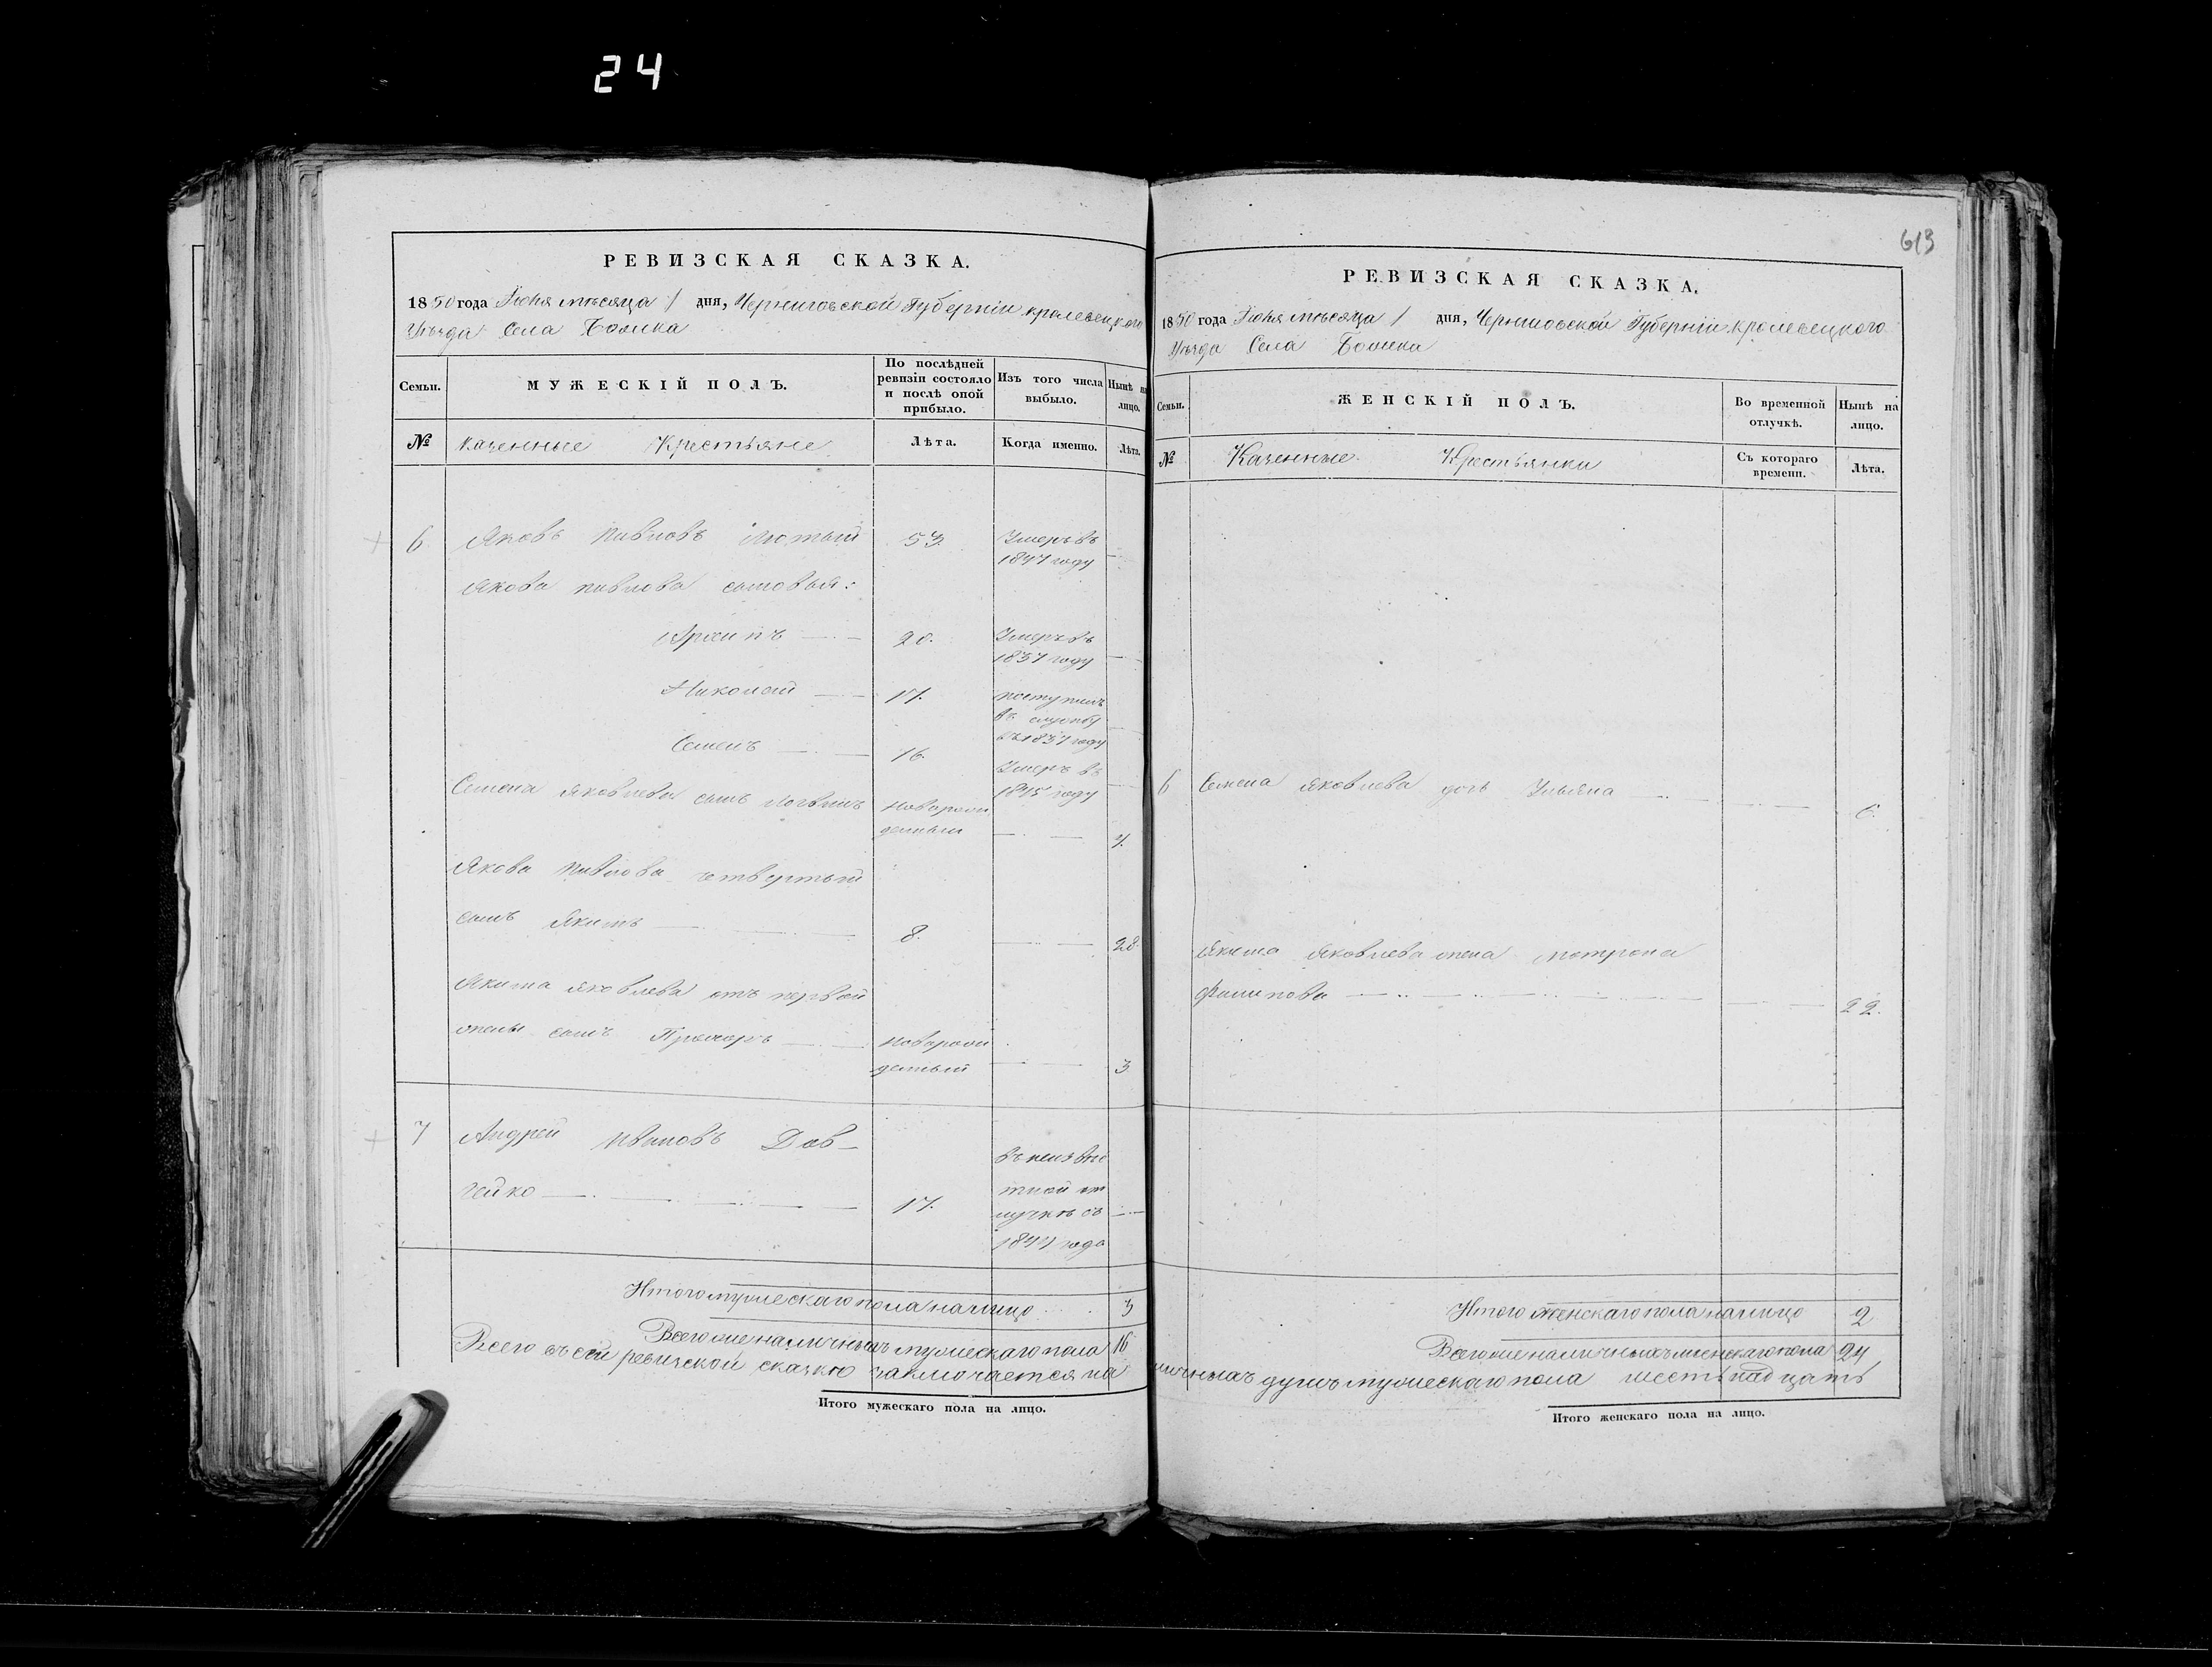 24
613
РЕВИЗСКАЯ СКАЗКА.
1850 года Іюня мѣсяца 1 дня, Черниговской Губерніи кролевецкого
Уѣзда Села
Семьи.
МУЖЕСКІЙ ПОЛЪ.
По послѣдней ревизіи состояло и послѣ оной прибыло.
Изъ того числа выбыло.
Нынѣ на лицо.
№
казенные Крестьяне
Лѣта.
Когда именно.
Лѣта.
6 Яковъ Павловъ Лютый 53. Умеръ въ
1847 году —
Якова павлова сыновья:
Архипъ — 20. Умеръ въ
1837 году —
Николай — 17. поступилъ
въ службу
въ 1837 году —
Семенъ — 16. Умеръ въ
1845 году —
Семена яковлева сынъ новорож
денный —
Якова Павлова четвертый
сынъ Якимъ — 8. — 28
Якима яковлева отъ первой
жены сынъ новорож
денный — 3
7 Андрей Ивановъ
17. въ неизвѣс
тной от
лучкѣ съ —
года
Итого мужескаго пола налицо 3
Всего же наличныхъ мужескаго пола 16
Всего въ сей ревизской сказкѣ заключается на
Итого мужескаго пола на лицо.
РЕВИЗСКАЯ СКАЗКА.
1850 года Іюня мѣсяца 1 дня, Черниговской Губерніи кролевецкого
Уѣзда Села
Семьи.
ЖЕНСКІЙ ПОЛЪ.
Во временной отлучкѣ.
Нынѣ на лицо.
№
Казенные Крестьянки
Съ котораго времени.
Лѣта.
6 Семена яковлева дочь Ульяна — — 6.
Якима яковлева жена мотрона
Филипова — — 22.
Итого женскаго пола налицо 2
Всего же наличныхъ женскаго пола 24
личныхъ душъ мужескаго пола шестьнадцать
Итого женскаго пола на лицо.